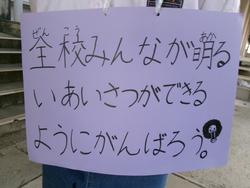 ぜん こう あか
全校みんなが明る
いあいさつができる
ようにがんばろう。